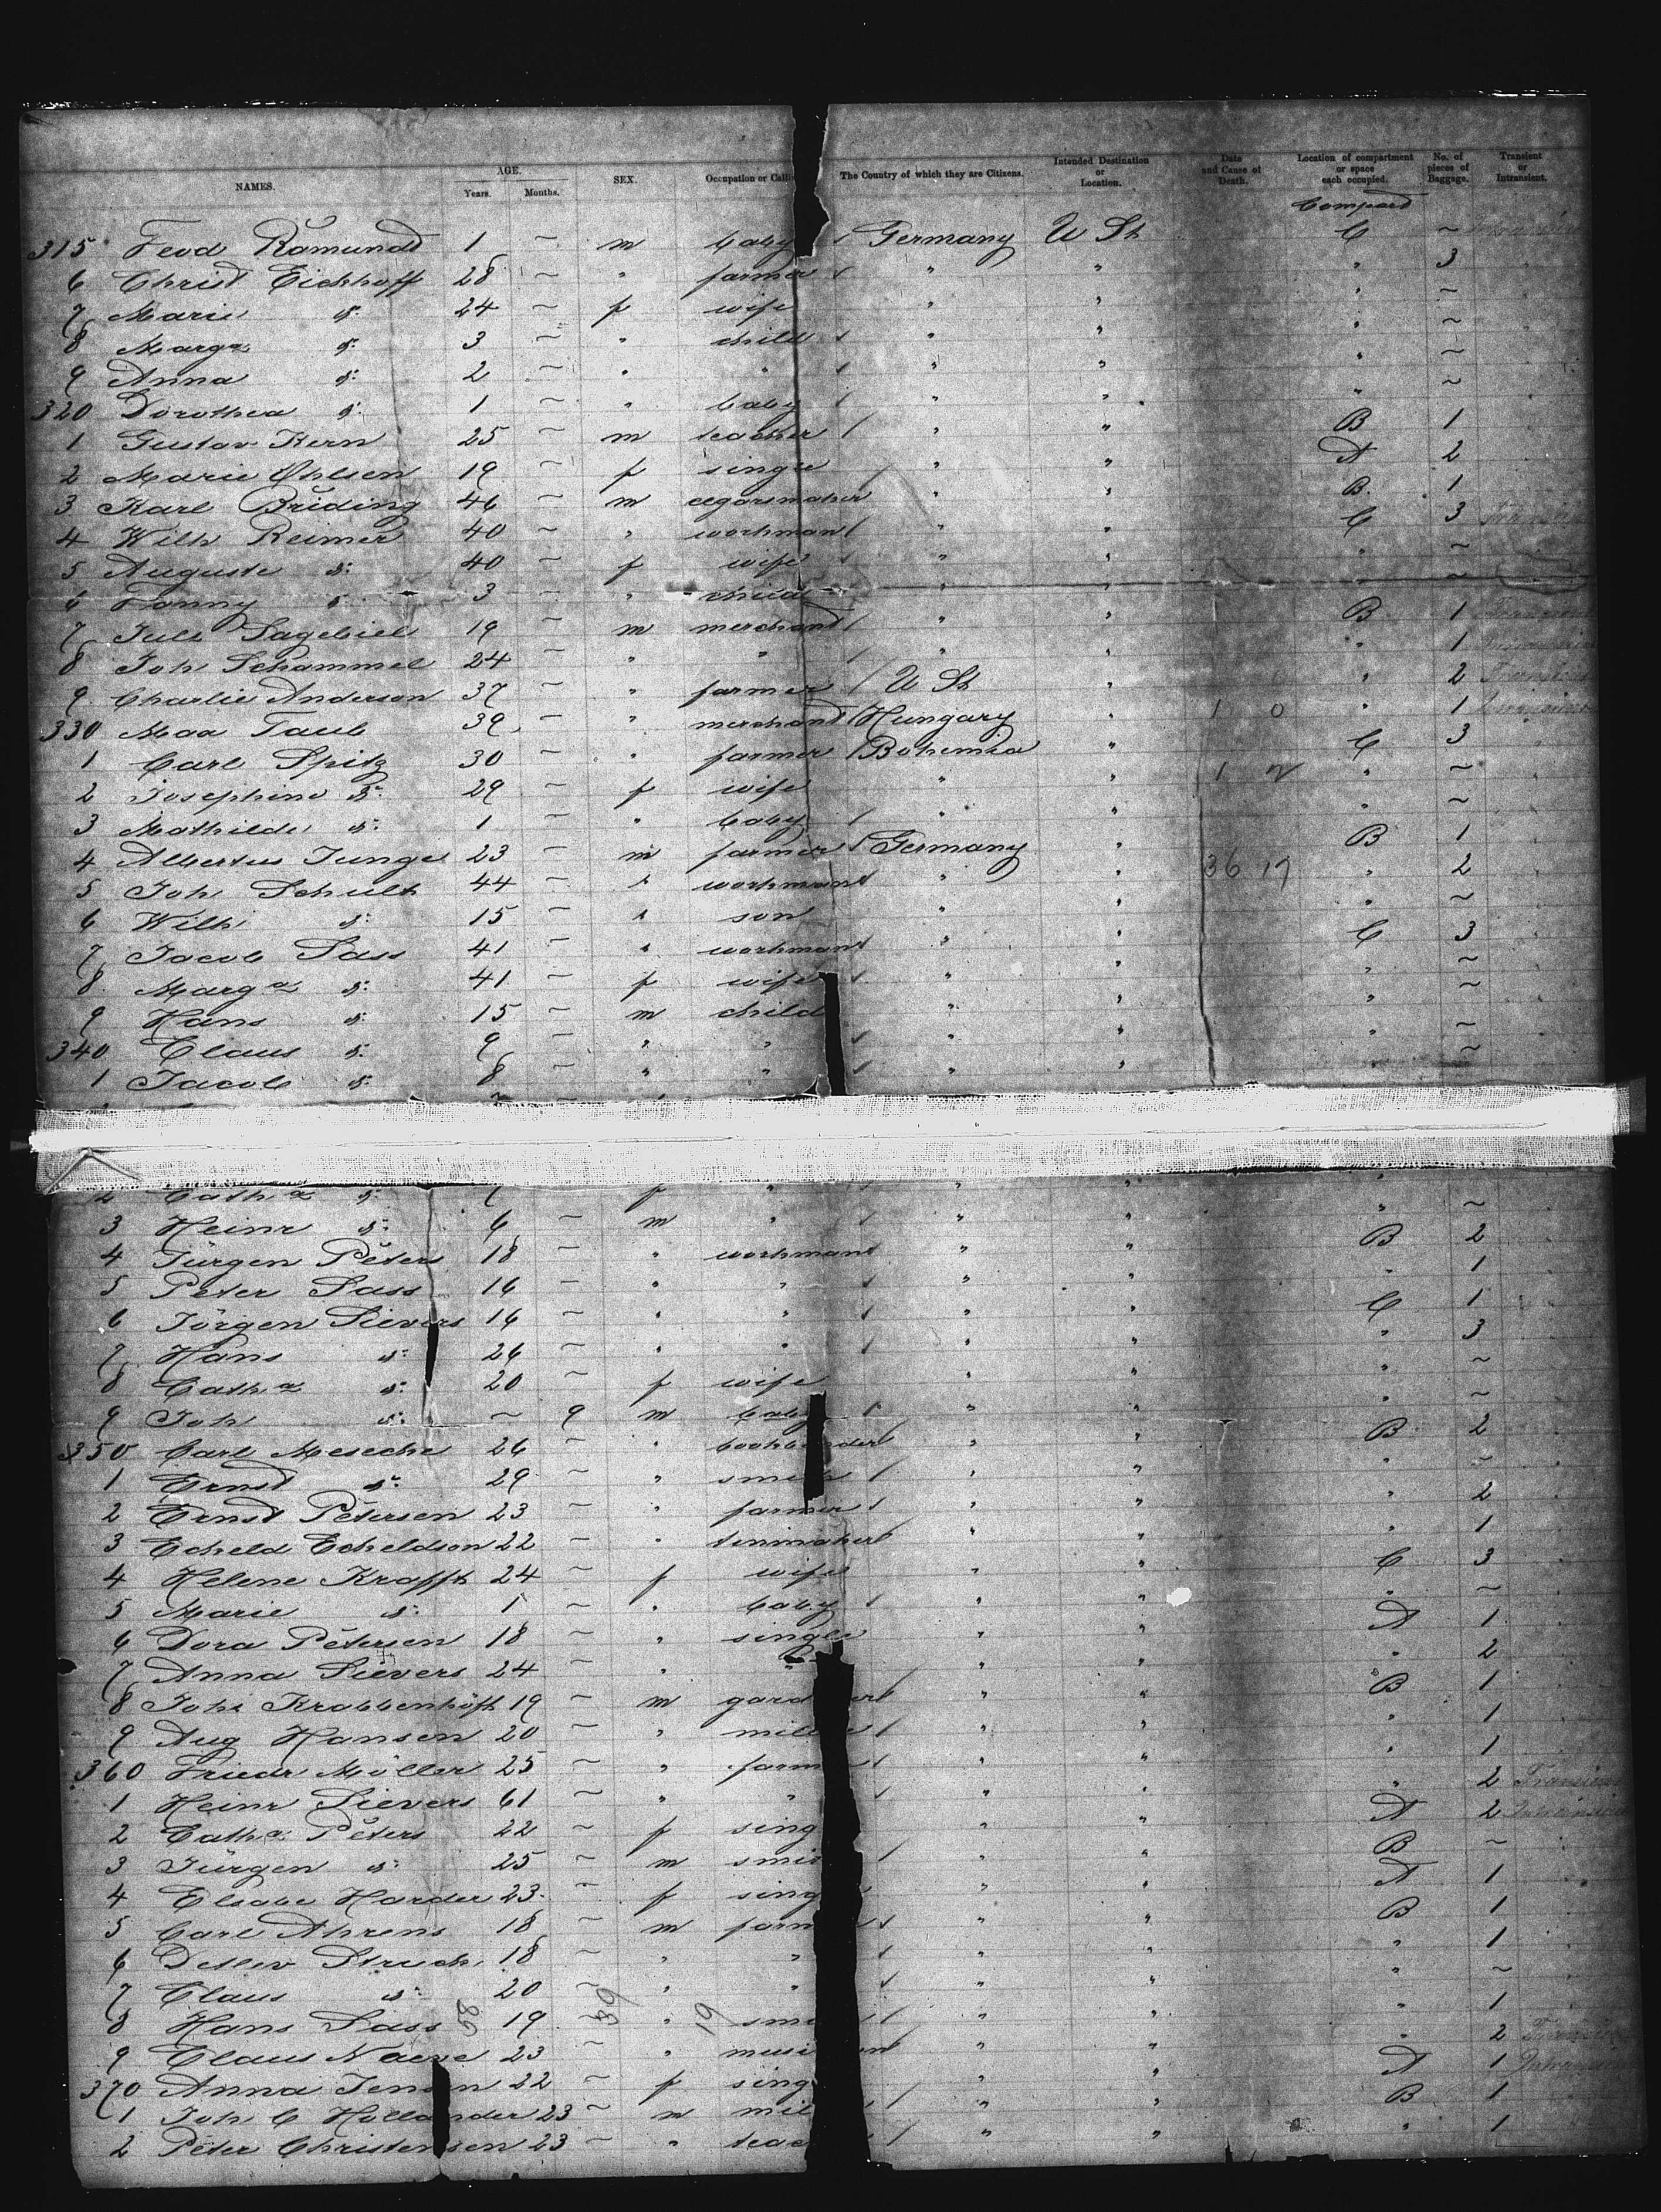 NAMES. AGE. Years. Months. SEX. Occupation or Calli The Country of which they are Citizens. Intended Destination or Location. Date and Cause of Death. Location of compartment or space each occupied. No. of pieces of Baggage. Transient or Intransient.
Compard
315 Feod Ramundt 1 ~ m baby Germany U St C ~
6 Christ Eichhoff 28 ~ " farmer " " " 3
7 Marie d: 24 ~ f wife " " " ~
8 Marga d: 3 ~ " child " " " ~
9 Anna d: 2 ~ " " " " " ~
320 Dorothea d: 1 ~ " baby " " " ~
1 Gustav Kern 25 ~ m teacher " " B 1
2 Marie Ohlsen 19 ~ f single " " A 2
3 Karl Brüding 46 ~ m cegarsmaker " " B 1
4 Wilh Reimer 40 ~ " workman " " C 3
5 Auguste d: 40 ~ f wife " " " ~
6 Fanny d: 3 ~ " child " " ~
7 Juls Sagebiel 19 ~ m merchant " " B 1
8 Joh Schammel 24 ~ " " " " " 1
9 Charlie Anderson 37 ~ " farmer U St " " 2 Transient
330 Max Taub 39 ~ " merchant Hungary " 1 0 " 1
1 Carl Spitz 30 ~ " farmer Bohemia " C 3
2 Josephine d: 29 ~ f wife " " 1 2 " ~
3 Mathilde d: 1 ~ " baby " " " ~
4 Albertus Junge 23 ~ m farmer Germany " B 1
5 Joh Schult 44 ~ " workman " " 36 17 " 2
6 Wilh d: 15 ~ " son " " " ~
7 Jacob Sass 41 ~ " workman " " C 3
8 Marga d: 41 ~ f wife " " " ~
9 Hans d: 15 ~ m child " " " ~
340 Claus d: 9 ~ " " " " " ~
1 Jacob d: 8 ~ " " " " " ~
2 Catha d: 7 f " " " "
3 Heinr d: 6 ~ m " " " " ~
4 Jürgen Peters 18 ~ " workman " " B 2
5 Peter Sass 16 ~ " " " " " 1
6 Jörgen Sievers 16 ~ " " " " C 1
7 Hans d: 26 ~ " " " " " 3
8 Catha d: 20 ~ f wife " " " ~
9 Joh d: ~ 9 m baby " " " ~
350 Carl Mesecke 26 ~ " bookbinder " " B 2
1 Ernst d: 29 ~ " smith " " " ~
2 Ernst Petersen 23 ~ " farmer " " " 2
3 Echeld Echeldson 22 ~ " " " " 1
4 Helene Krafft 24 ~ f wife " " C 3
5 Marie d: 1 ~ " baby " " " ~
6 Dora Petersen 18 ~ " single " " A 1
7 Anna Sievers 24 ~ " " " " " 2
8 Johs Krabbenhöft 19 ~ m gard er " " B 1
9 Aug Hansen 20 ~ " mille " " " 1
360 Friedr Möller 25 ~ " farm " " " 1
1 Heinr Sievers 61 ~ " " " " " 2 Transient
2 Catha Peters 22 ~ f sing " " A 2 Intransient
3 Jürgen d: 25 ~ m smi " " B ~
4 Elsabe Harder 23 ~ f sing " " A 1
5 Carl Ahrens 18 ~ m farm " " B 1
6 Detlev Struck 18 ~ " " " " " 1
7 Claus d: 20 ~ " " " " " ~
8 Hans Sass 58 19 ~ 39 " 19 smi " " " 1
9 Claus Naeve 23 ~ " musi an " " " 2
370 Anna Jensen 22 ~ f sing " " A 1
1 Joh C Hollander 23 ~ m mil " " B 1
2 Peter Christensen 23 ~ " teac " " " 1